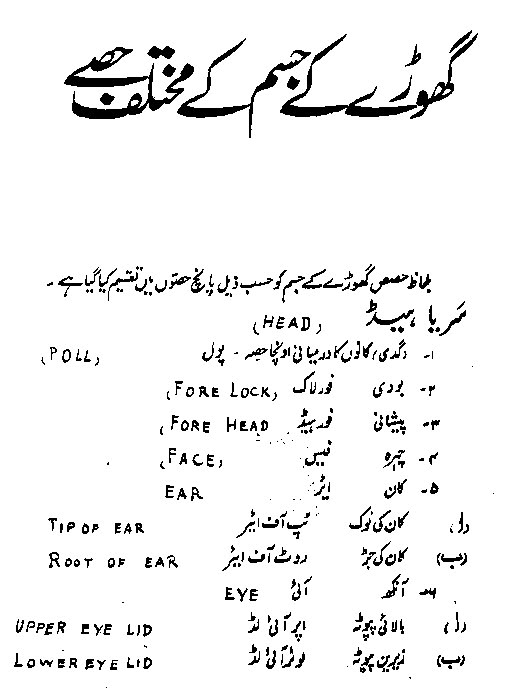 گھوڑے کے جسم کے مختلف حصے
بلحاظ حصص گھوڑے کے جسم کو حسب ذیل پانچ حصتوں میں تقسیم کیا گیا ہے ۔
سَر یا ہیڈ (HEAD)
۱۔ (گدی) کانوں کا درمیانی اونچا حصہ ۔ پول (POLL)
۲۔ بودی فورلاک (FORE LOCK)
۳۔ پیشانی فورہیڈ (FORE HEAD)
۴۔ چہرہ فیس (FACE)
۵۔ کان ایئر EAR
(ا) کان کی نوک ٹپ آف ایئر TIP OF EAR
(ب) کان کی جڑ روٹ آف ایئر ROOT OF EAR
۶۔ آنکھ آئی EYE
(ا) بالائی پپوٹہ اپر آئی لڈ UPPER EYE LID
(ب) زیریں پپوٹہ لوئر آئی لڈ LOWER EYE LID